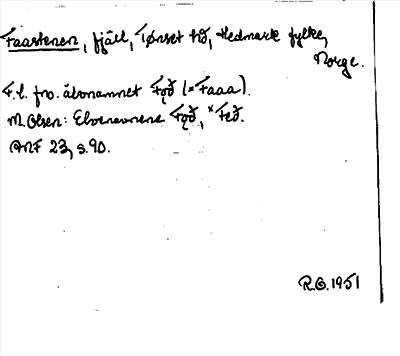 Faastenen, fjäll, Tønset hd, Hedmark fylke,
Norge.
F.l. fno. älvnamnet Fǫð (= Faaa).
M. Olsen: Elvenavnene Fǫð, *Feð.
ANF 23, s.90.
R.O. 1951